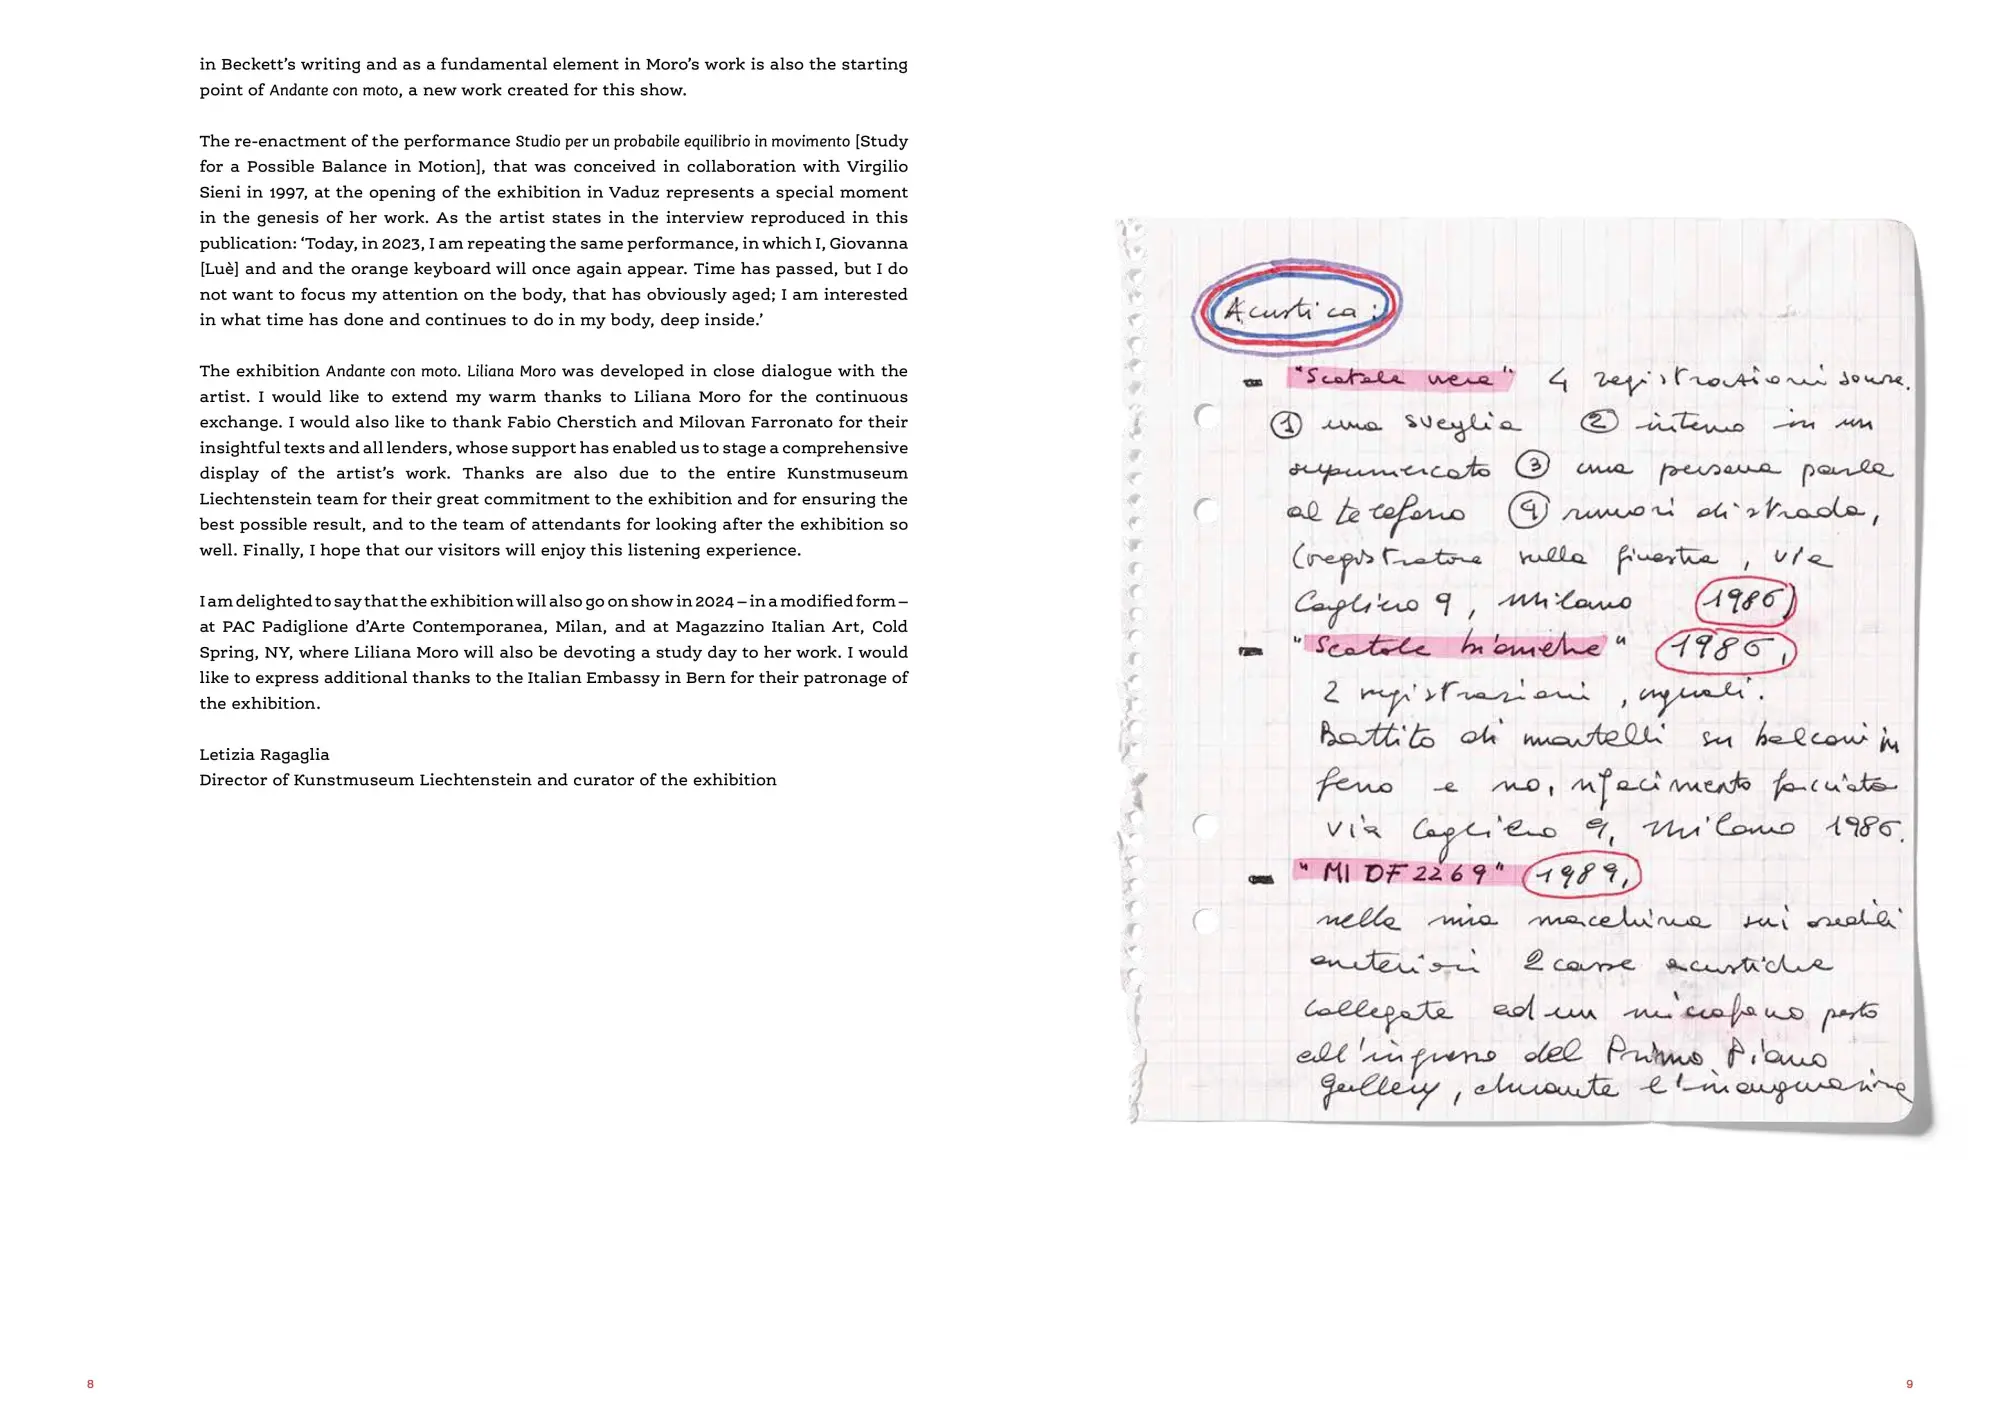 in Beckett’s writing and as a fundamental element in Moro’s work is also the starting
point of Andante con moto, a new work created for this show.
The re-enactment of the performance Studio per un probabile equilibrio in movimento [Study
for a Possible Balance in Motion], that was conceived in collaboration with Virgilio
Sieni in 1997, at the opening of the exhibition in Vaduz represents a special moment
in the genesis of her work. As the artist states in the interview reproduced in this
publication: ‘Today, in 2023, I am repeating the same performance, in which I, Giovanna
[Luè] and and the orange keyboard will once again appear. Time has passed, but I do
not want to focus my attention on the body, that has obviously aged; I am interested
in what time has done and continues to do in my body, deep inside.’
The exhibition Andante con moto. Liliana Moro was developed in close dialogue with the
artist. I would like to extend my warm thanks to Liliana Moro for the continuous
exchange. I would also like to thank Fabio Cherstich and Milovan Farronato for their
insightful texts and all lenders, whose support has enabled us to stage a comprehensive
display of the artist’s work. Thanks are also due to the entire Kunstmuseum
Liechtenstein team for their great commitment to the exhibition and for ensuring the
best possible result, and to the team of attendants for looking after the exhibition so
well. Finally, I hope that our visitors will enjoy this listening experience.
I am delighted to say that the exhibition will also go on show in 2024 – in a modified form –
at PAC Padiglione d’Arte Contemporanea, Milan, and at Magazzino Italian Art, Cold
Spring, NY, where Liliana Moro will also be devoting a study day to her work. I would
like to express additional thanks to the Italian Embassy in Bern for their patronage of
the exhibition.
Letizia Ragaglia
Director of Kunstmuseum Liechtenstein and curator of the exhibition
8
Acustica:
- "Scatole nere" 4 registrazioni sonore.
① una sveglia ② interno in un
supermercato ③ una persona parla
al telefono ④ rumori di strada,
(registratore sulla finestra, via
Cagliero 9, Milano 1986)
- "Scatole bianche" 1986,
2 registrazioni, uguali.
Battito di martelli su balconi in
ferro e no, rifacimento facciata
via Cagliero 9, Milano 1986.
- "MI DF 2269" 1989,
nella mia macchina sui sedili
anteriori 2 casse acustiche
collegate ad un microfono posto
all'ingresso del Primo Piano
gallery, durante l'inaugurazione
9